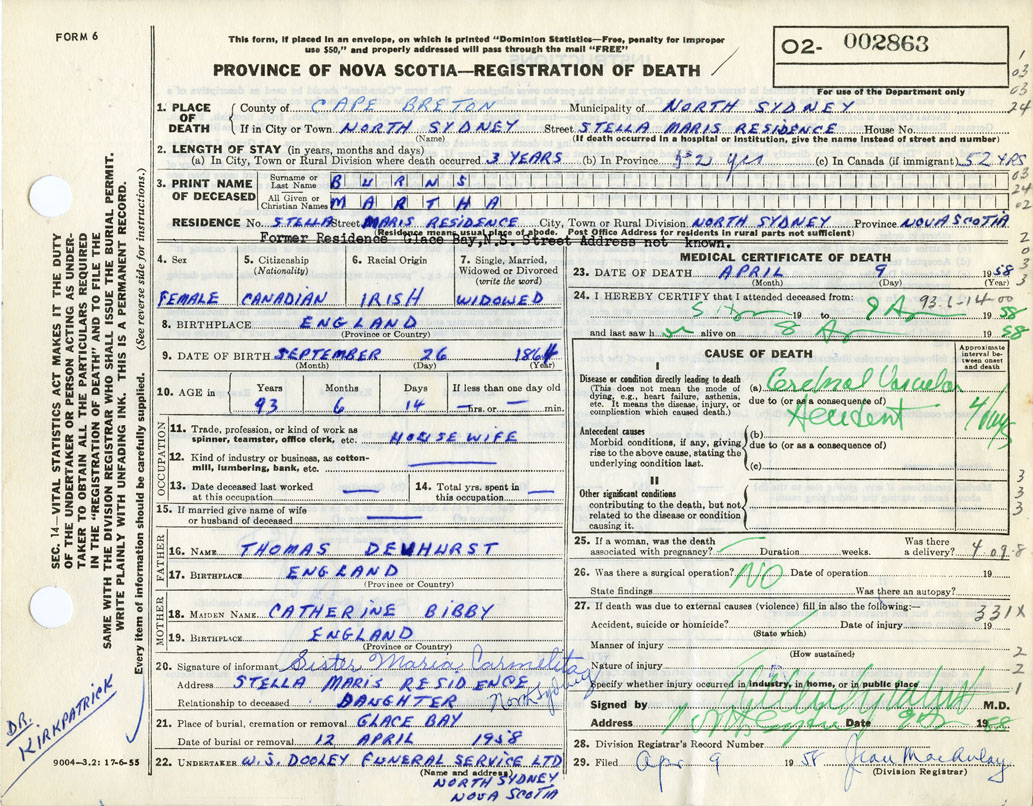 FORM 6
This form, if placed in an envelope, on which is printed "Dominion Statistics—Free, penalty for improper
use $50," and properly addressed will pass through the mail "FREE"
PROVINCE OF NOVA SCOTIA—REGISTRATION OF DEATH
02- 002863
For use of the Department only
1. PLACE OF DEATH
County of CAPE BRETON Municipality of NORTH SYDNEY
If in City or Town NORTH SYDNEY Street STELLA MARIS RESIDENCE House No.
(Name) (If death occurred in a hospital or institution, give the name instead of street and number)
2. LENGTH OF STAY (in years, months and days)
(a) In City, Town or Rural Division where death occurred 3 YEARS (b) In Province 52 yrs (c) In Canada (if immigrant) 52 YRS
3. PRINT NAME OF DECEASED
Surname or Last Name BURNS
All Given or Christian Names MARTHA
RESIDENCE No. STELLA Street MARIS RESIDENCE City, Town or Rural Division NORTH SYDNEY Province NOVA SCOTIA
Residence means usual place of abode. Post Office Address for residents in rural parts not sufficient)
Former Residence Glace Bay, N.S. Street Address not known.
4. Sex
FEMALE
5. Citizenship
(Nationality)
CANADIAN
6. Racial Origin
IRISH
7. Single, Married,
Widowed or Divorced
(write the word)
WIDOWED
8. BIRTHPLACE ENGLAND
(Province or Country)
9. DATE OF BIRTH SEPTEMBER 26 1864
(Month) (Day) (Year)
10. AGE in
Years Months Days If less than one day old
93 6 14 — hrs. or — min.
OCCUPATION
11. Trade, profession, or kind of work as
spinner, teamster, office clerk, etc. HOUSE WIFE
12. Kind of industry or business, as cotton-
mill, lumbering, bank, etc. —
13. Date deceased last worked
at this occupation —
14. Total yrs. spent in
this occupation —
15. If married give name of wife
or husband of deceased —
FATHER
16. NAME THOMAS DEWHURST
17. BIRTHPLACE ENGLAND
(Province or Country)
MOTHER
18. MAIDEN NAME CATHERINE BIBBY
19. BIRTHPLACE ENGLAND
(Province or Country)
20. Signature of informant Sister Maria Carmelita
Address STELLA MARIS RESIDENCE
North Sydney
Relationship to deceased DAUGHTER
21. Place of burial, cremation or removal GLACE BAY
Date of burial or removal 12 APRIL 1958
22. UNDERTAKER W.J. DOOLEY FUNERAL SERVICE LTD
(Name and address)
NORTH SYDNEY
NOVA SCOTIA
MEDICAL CERTIFICATE OF DEATH
23. DATE OF DEATH APRIL 9 1958
(Month) (Day) (Year)
24. I HEREBY CERTIFY that I attended deceased from: 93-6-14-00
5 Apr 19 to 9 Apr 1958
and last saw h er alive on 8 Apr 1958
CAUSE OF DEATH
Approximate
interval be-
tween onset
and death
I
Disease or condition directly leading to death
(This does not mean the mode of
dying, e.g., heart failure, asthenia,
etc. It means the disease, injury, or
complication which caused death.)
(a) Cerebral Vascular
due to (or as a consequence of)
Accident
4 days
Antecedent causes
Morbid conditions, if any, giving
rise to the above cause, stating the
underlying condition last.
(b)
due to (or as a consequence of)
(c)
II
Other significant conditions
contributing to the death, but not
related to the disease or condition
causing it.
25. If a woman, was the death
associated with pregnancy? Duration weeks. Was there
a delivery? 4 09 8
26. Was there a surgical operation? NO Date of operation 19
State findings Was there an autopsy?
27. If death was due to external causes (violence) fill in also the following:—
331X
Accident, suicide or homicide? Date of injury 19
(State which)
Manner of injury
(How sustained)
Nature of injury
Specify whether injury occurred in industry, in home, or in public place
Signed by M.D.
Address North Sydney Date 9 Apr 1958
28. Division Registrar's Record Number
29. Filed Apr 9 1958 Jean MacAulay
(Division Registrar)
SEC. 14—VITAL STATISTICS ACT MAKES IT THE DUTY
OF THE UNDERTAKER OR PERSON ACTING AS UNDER-
TAKER TO OBTAIN ALL THE PARTICULARS REQUIRED
IN THE "REGISTRATION OF DEATH" AND TO FILE THE
SAME WITH THE DIVISION REGISTRAR WHO SHALL ISSUE THE BURIAL PERMIT.
WRITE PLAINLY WITH UNFADING INK. THIS IS A PERMANENT RECORD.
Every item of information should be carefully supplied. (See reverse side for instructions.)
DR. KIRKPATRICK
9004-3.2: 17-6-55
1
03
03
24
03
24
02
2
0
3
3
3
3
3
2
2
1